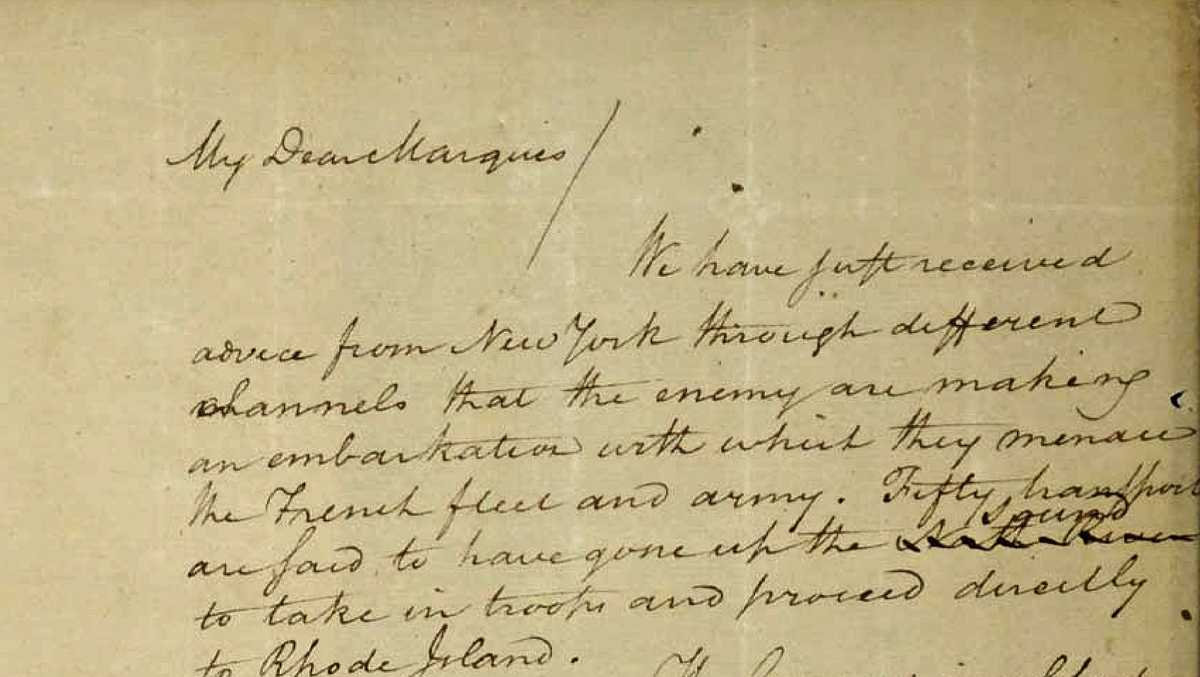 My Dear Marquis
We have just received
advice from New York through different
channels that the enemy are making
an embarkation with which they menace
the French fleet and army. Fifty transports
sound
are said to have gone up the North River
to take in troops and proceed directly
to Rhode Island.